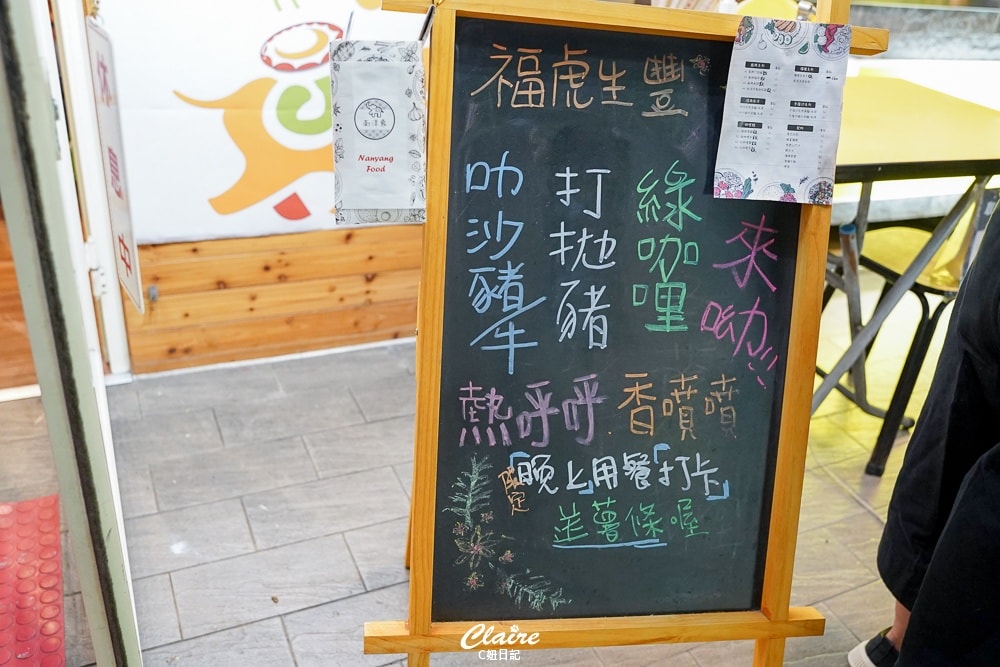 福虎生豐
叻沙豬/牛
打拋豬
綠咖哩
來呦!!
熱呼呼.香噴噴
限定
「晚上」用餐「打卡」
送薯條喔
南洋象
Nanyang
Food
休息中
Claire
C妞日記